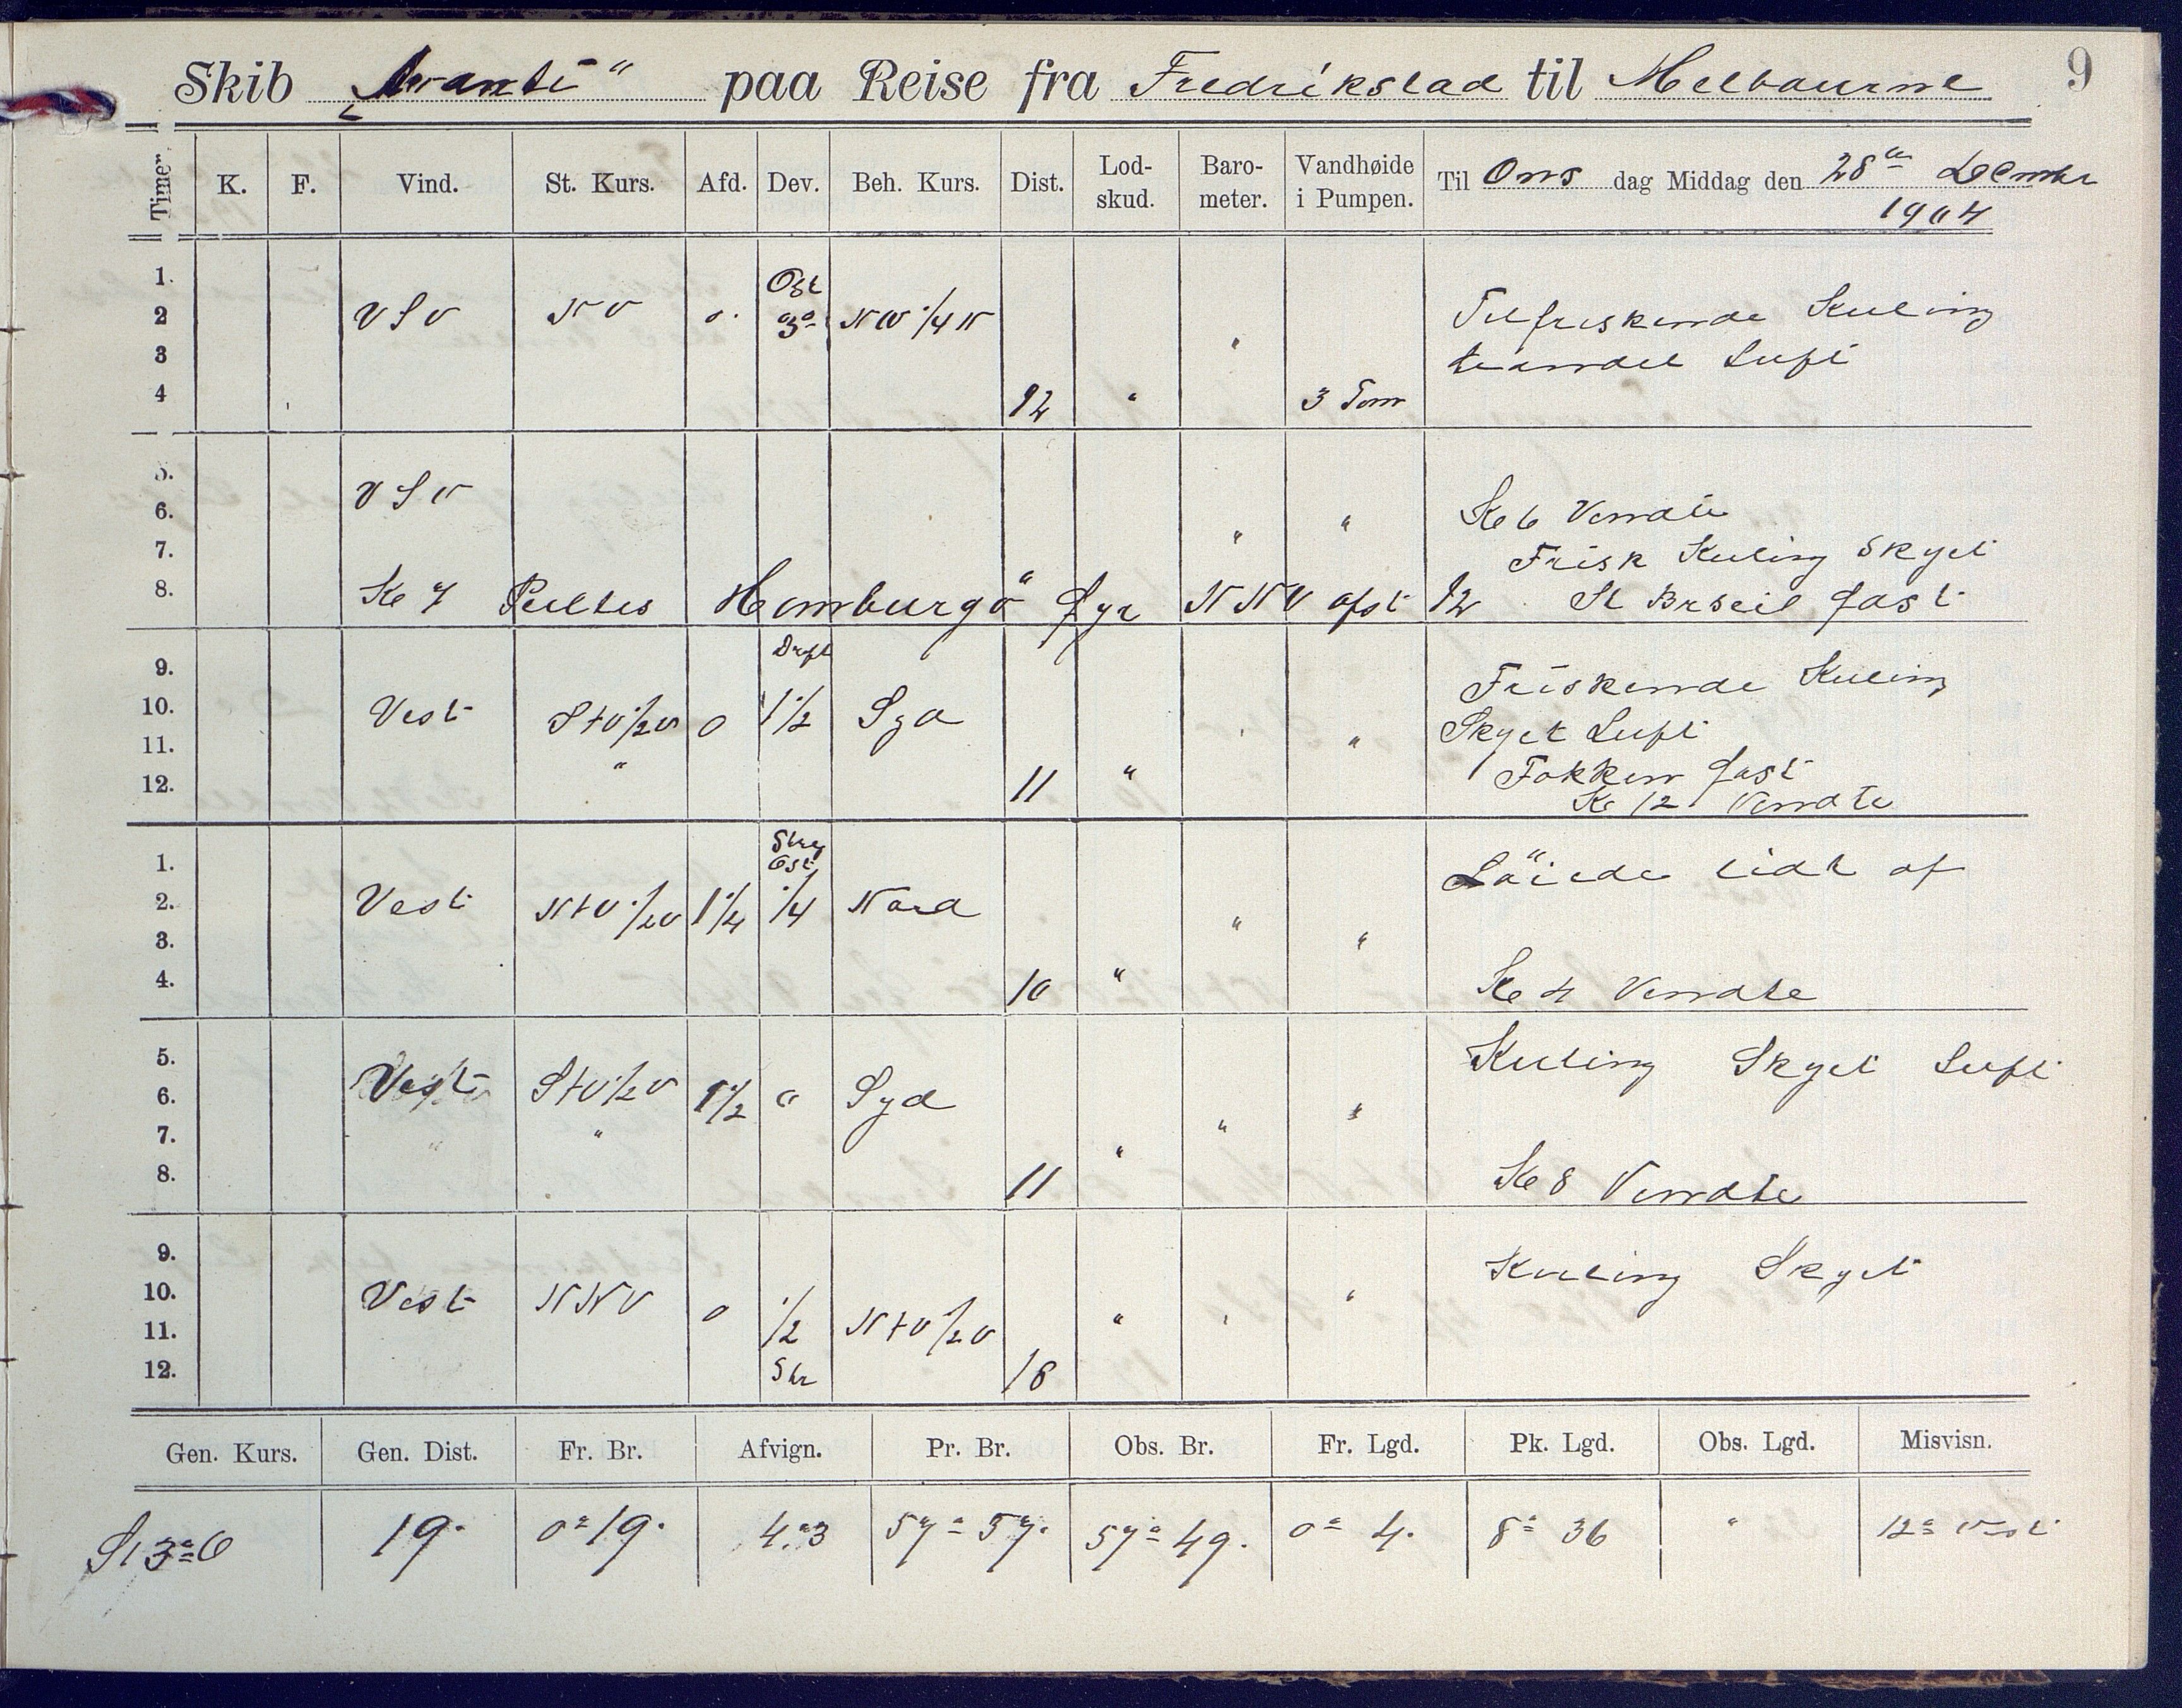 9
Skib „Avanti“ paa Reise fra Fredrikstad til Melbourne
Timer. K. F. Vind. St. Kurs. Afd. Dev. Beh. Kurs. Dist. Lod-skud. Baro-meter. Vandhøide i Pumpen. Til Ons dag Middag den 28de Decmbr 1904
1. Ost
2 VSV NV o. 3° NW 1/4 N Tilfriskende Kuling
3 " Luft
4 12 " 3 Tom
5. VSV
6. " " Kl 6 Vendte
7. Frisk Kuling Skyet
8. Kl 7 Peiltes Homburgö Fyr NNV afst 12 St Brseil fast
9. Drift Friskende Kuling
10. Vest StV 1/2 V o 1 1/2 Syd Skyet Luft
11. " " Fokken fast
12. 11 " Kl 12 Vendte
1. Ost Löiede lidt af
2. Vest NtV 1/2 V 1 1/4 1/4 Nord "
3. "
4. 10 " Kl 4 Vendte
5. Kuling Skyet Luft
6. Vest StV 1/2 V 1 1/2 o Syd "
7. " " " "
8. 11 Kl 8 Vendte
9. Kuling Skyet
10. Vest NNV o 1/2 "
11. NtV 1/2 V " "
12. 18
Gen. Kurs. Gen. Dist. Fr. Br. Afvign. Pr. Br. Obs. Br. Fr. Lgd. Pk. Lgd. Obs. Lgd. Misvisn.
19. 0° 19. 57° 57. 57° 49. 0° 4. 8° 36 " 12° Vest